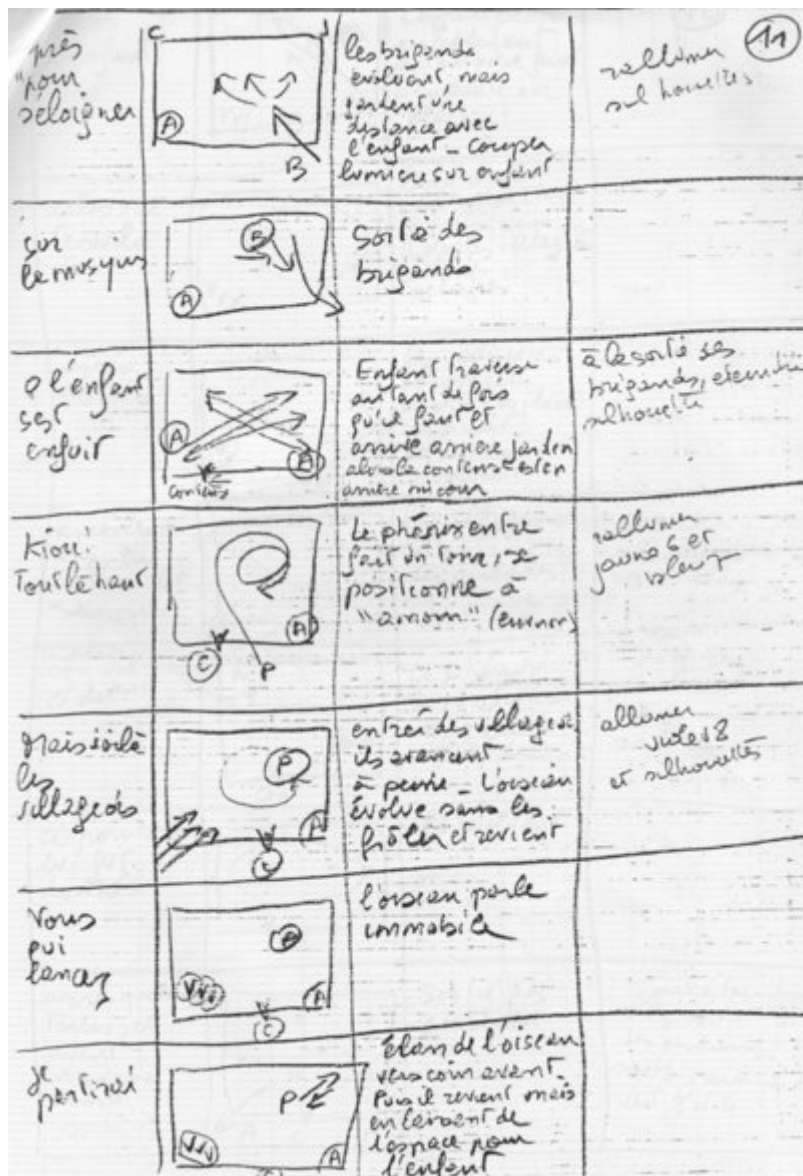 11
près
"pour
s'éloigner
C
A
B
les brigands
évoluent mais
gardent une
distance avec
l'enfant - couper
lumière sur enfant
rallumer
silhouettes
sur
la musique
B
A
Sortie des
brigands
o l'enfant
s'est
enfuit
A
A
conteus
Enfant traverse
autant de fois
qu'il faut et
arrive arrière jardin
alors la conteuse est en
arrière mi cour
à la sortie des
brigands, éteindre
silhouette
Kiou!
Tout là haut
A
C
P
Le phénix entre
fait un tour, se
positionne à
rallumer
jaune 6 et
bleu 7
Mais voilà
les
villageois
P
A
C
entrée des villageois
ils avancent
à peine - L'oiseau
évolue sans les
frôler et revient
allumer
violet 8
et silhouettes
Vous
qui
lancez
VVV
A
C
l'oiseau parle
immobile
je
partirai
P
VVV
A
Élan de l'oiseau
vers coin avant.
Puis il revient mais
en laissant de
l'espace pour
l'enfant